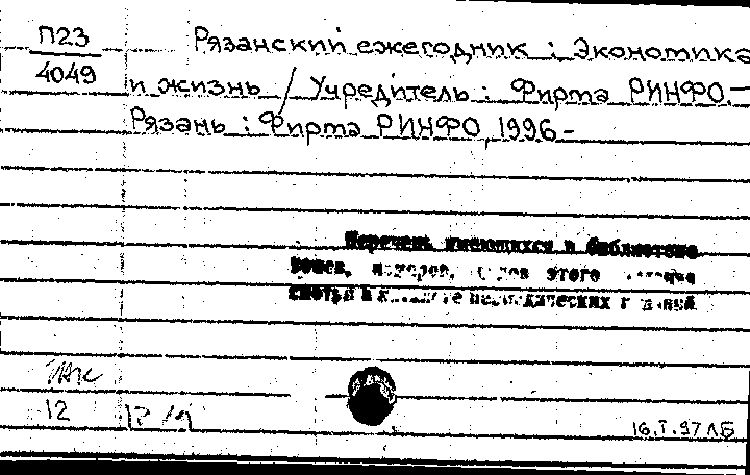 П23
4049
Рязанский ежегодник : Экономика
и жизнь / Учредитель : Фирма РИНФО.—
Рязань : Фирма РИНФО, 1996 -
Перечень имеющихся в библиотеке
томов, номеров, этого
смотри в периодических
12
16.I.97 ЛБ